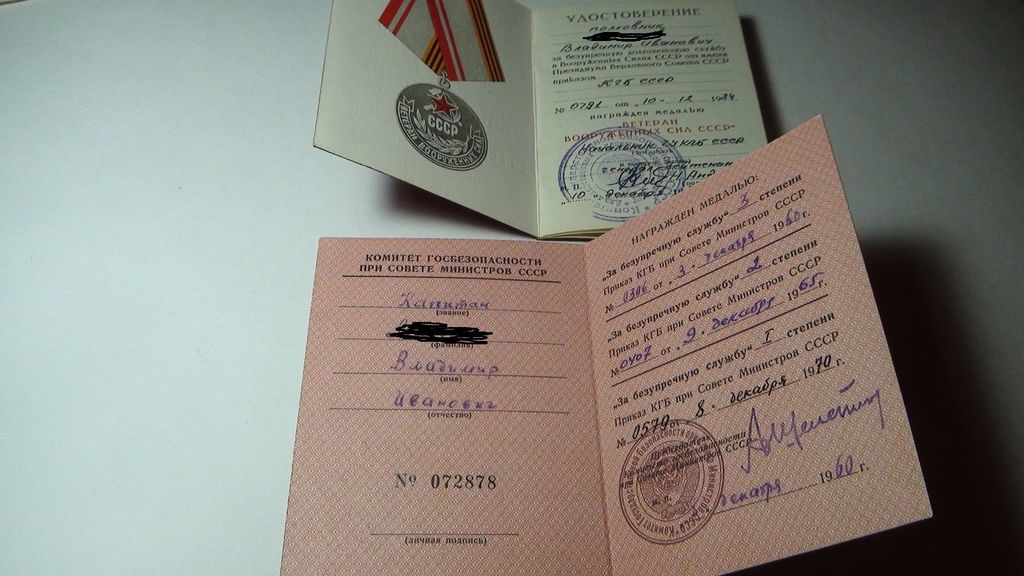 СССР
ВЕТЕРАН ВООРУЖЕННЫХ СИЛ
УДОСТОВЕРЕНИЕ
полковник
Владимир Иванович
за безупречную долголетнюю службу
в Вооруженных Силах СССР от имени
Президиума Верховного Совета СССР
приказом КГБ СССР
№ 0791 от "10" 12 1984.
награжден медалью
"ВЕТЕРАН
ВООРУЖЕННЫХ СИЛ СССР"
Начальник КГБ СССР
10 декабря
КОМИТЕТ ГОСБЕЗОПАСНОСТИ
ПРИ СОВЕТЕ МИНИСТРОВ СССР
Капитан
(звание)
(фамилия)
Владимир
(имя)
Иванович
(отчество)
№ 072878
(личная подпись)
НАГРАЖДЕН МЕДАЛЬЮ:
„За безупречную службу“ 3 степени
Приказ КГБ при Совете Министров СССР
№ 0306 от „3“ декабря 1960 г.
„За безупречную службу“ 2 степени
Приказ КГБ при Совете Министров СССР
№ 0407 от „9“ декабря 1965 г.
„За безупречную службу“ I степени
Приказ КГБ при Совете Министров СССР
№ 0579 от „8“ декабря 1970 г.
Председатель
Комитета Госбезопасности
при Совете Министров СССР
М. П.
декабря 1960 г.